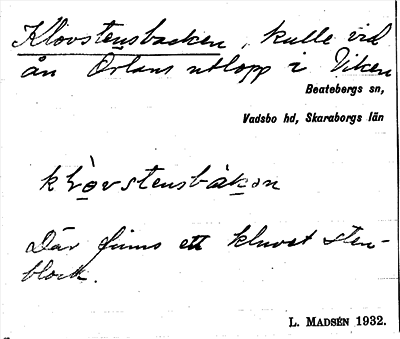 Klovstensbacken, kulle vid
ån Örlans utlopp i Viken
Beatebergs sn,
Vadsbo hd, Skaraborgs län
Där finns ett kluvet sten-
block.
L. MADSÉN 1932.